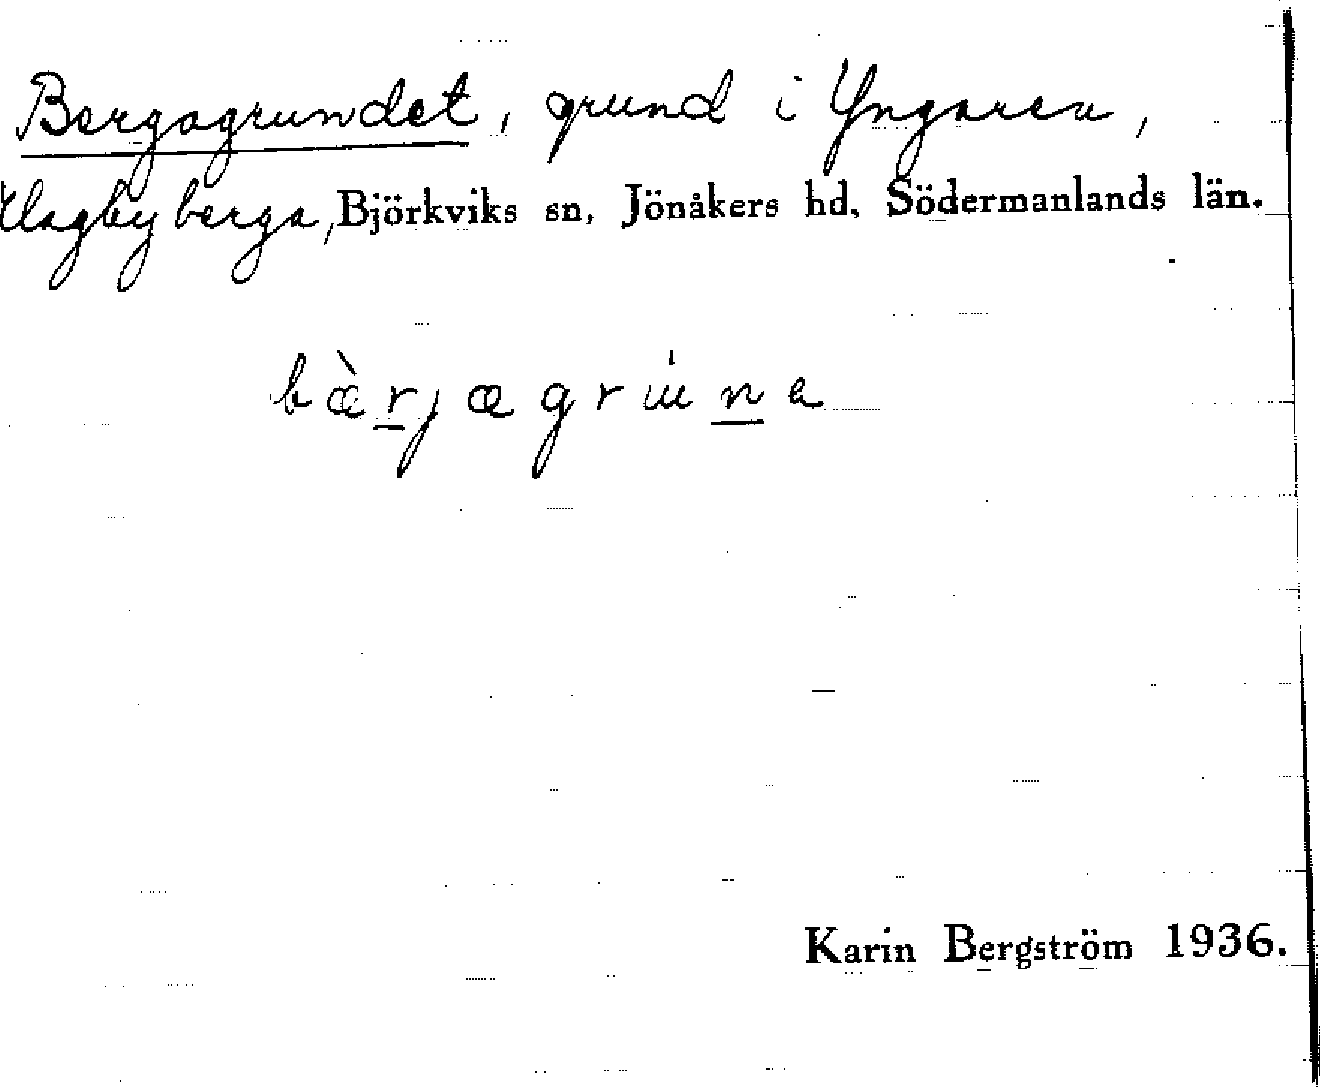 Bergagrundet, grund i Yngaren,
Klagbyberga, Björkviks sn, Jönåkers hd, Södermanlands län.
bæ̀rjægrúna
Karin Bergström 1936.